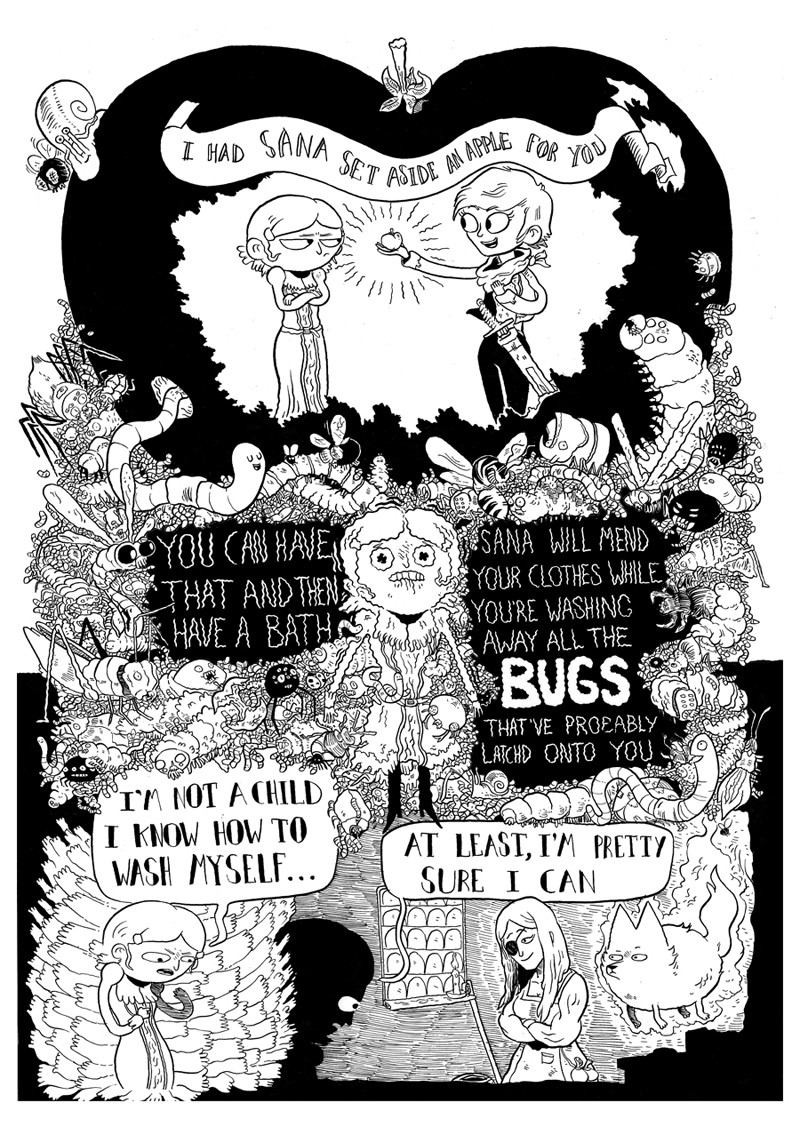 I HAD SANA SET ASIDE AN APPLE FOR YOU
YOU CAN HAVE
THAT AND THEN
HAVE A BATH
SANA WILL MEND
YOUR CLOTHES WHILE
YOU'RE WASHING
AWAY ALL THE
BUGS
THAT'VE PROBABLY
LATCHD ONTO YOU
I'M NOT A CHILD
I KNOW HOW TO
WASH MYSELF...
AT LEAST, I'M PRETTY
SURE I CAN